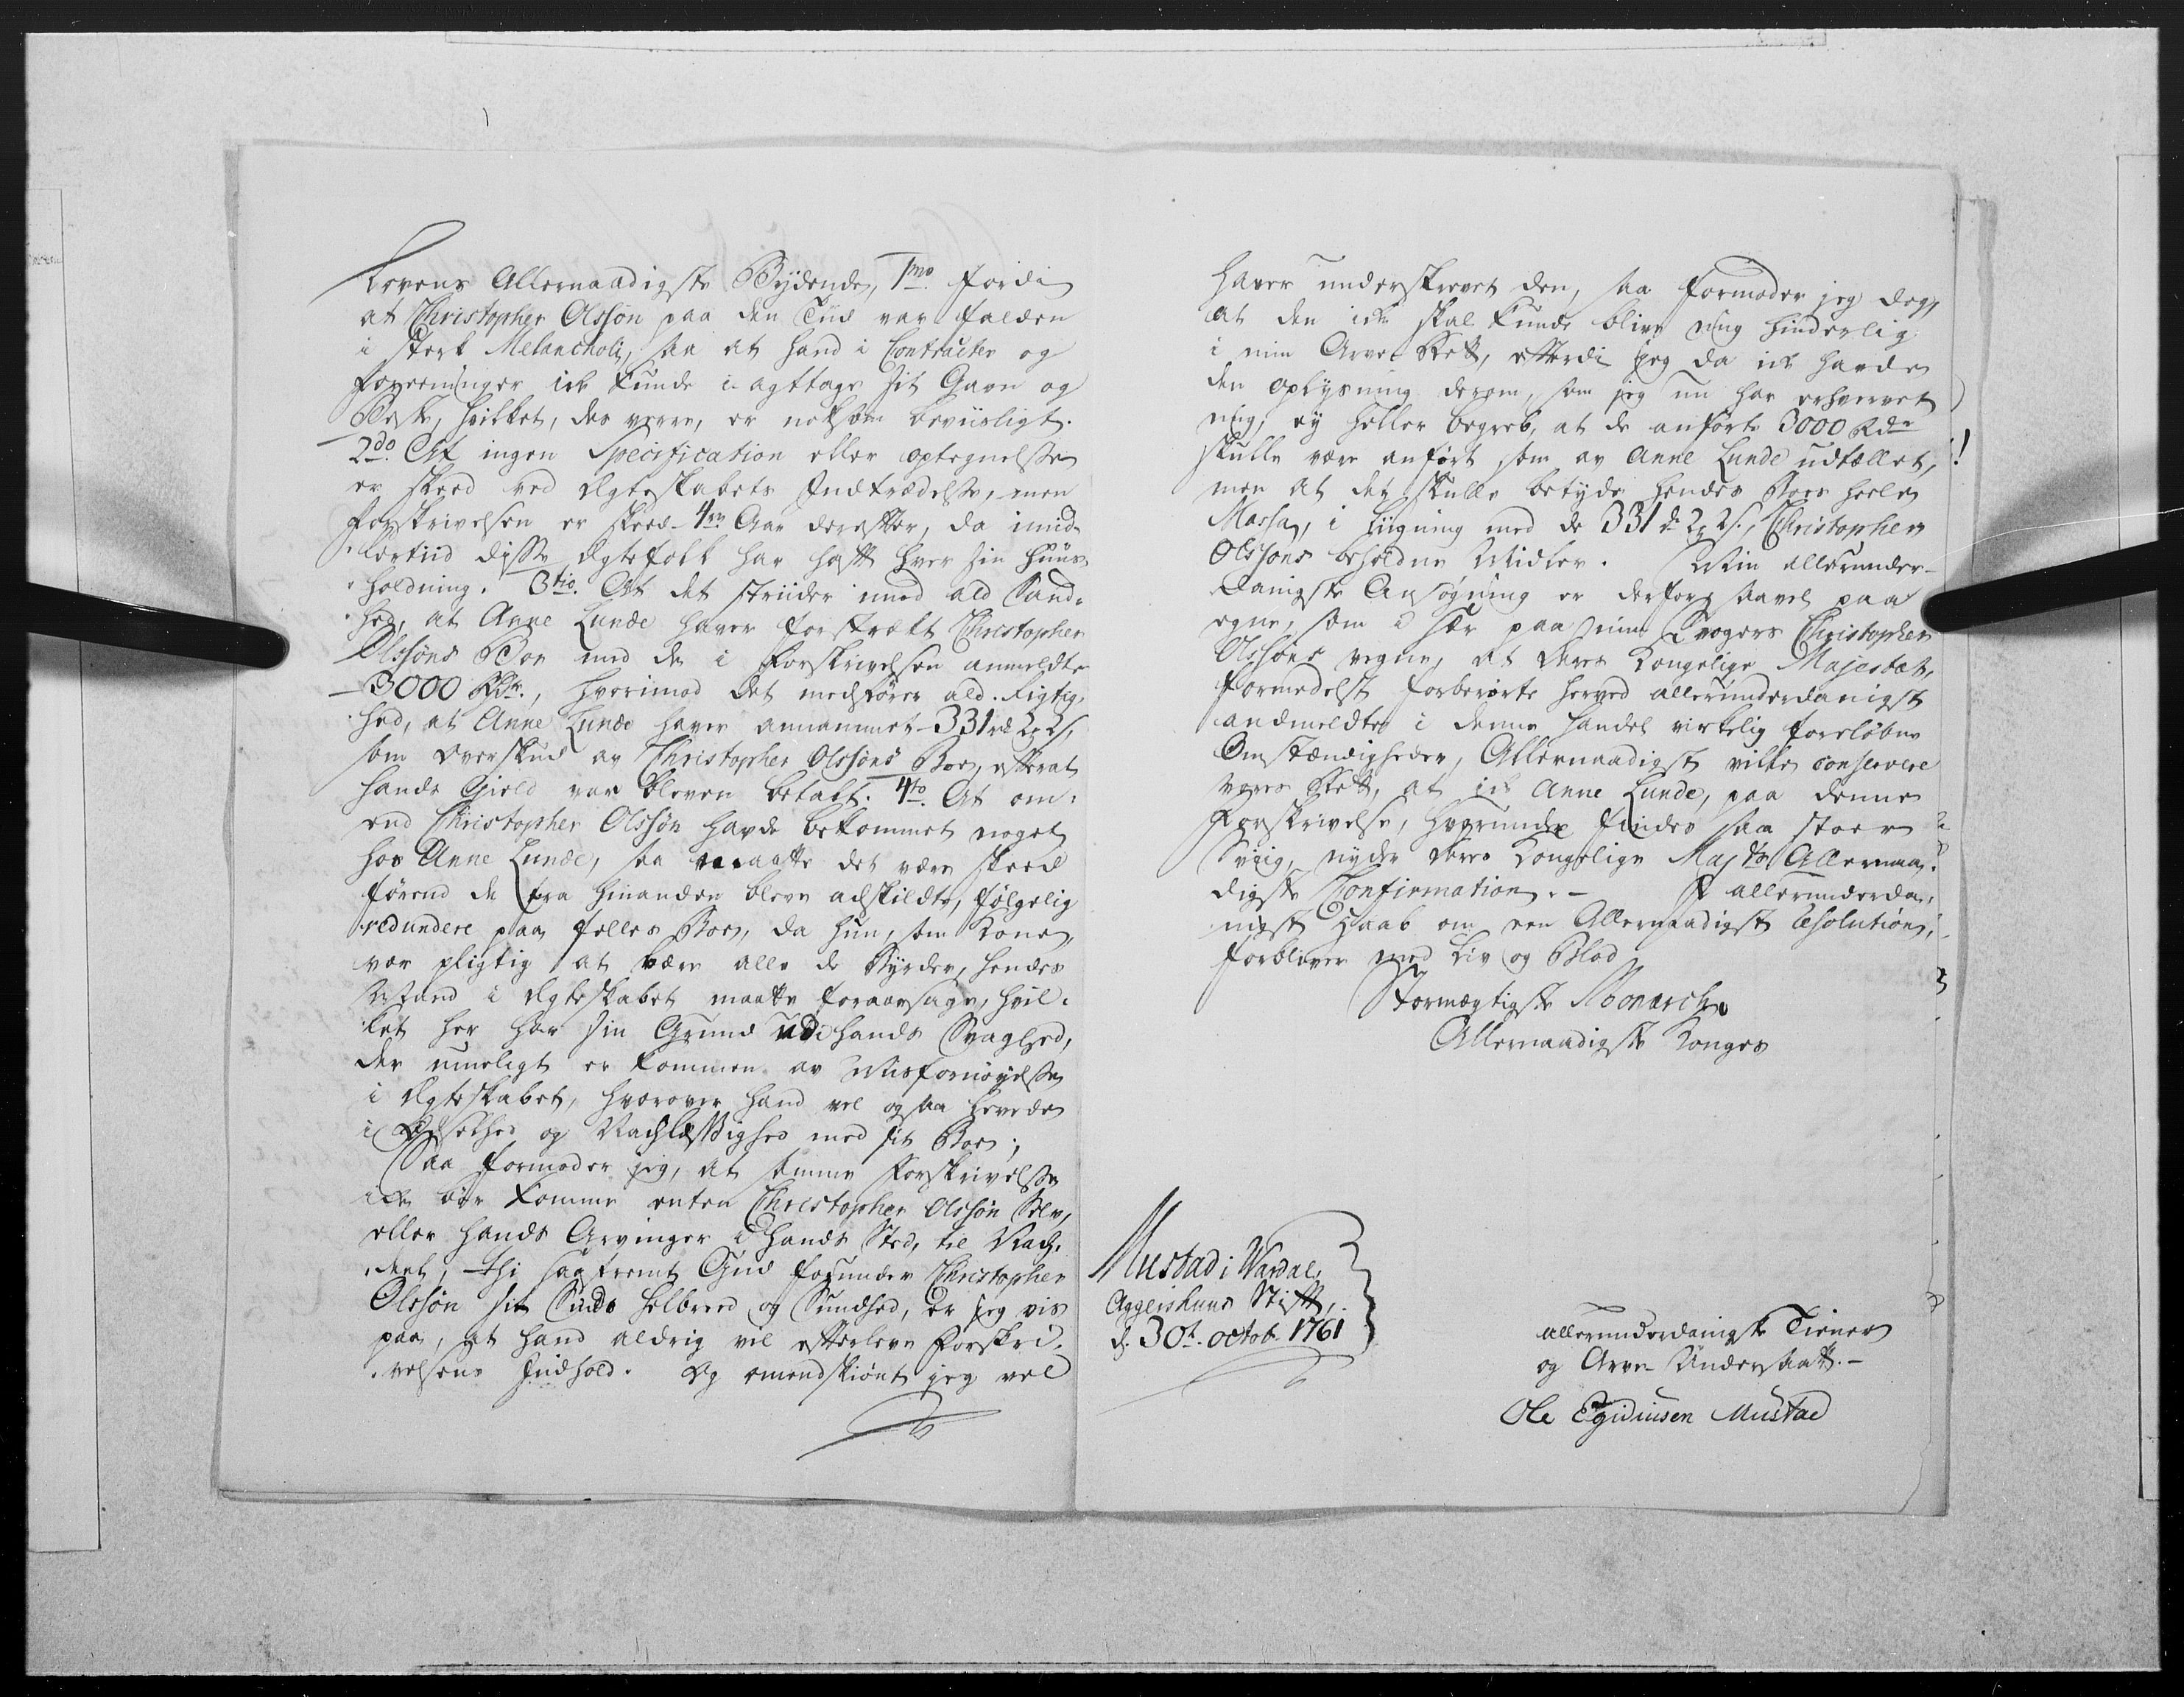 Lovens Allernaadigste Bydende, 1mo. fordi
at Christopher Olssøn paa den Tiid var falden
i sterk Melancholi, saa at hand i Contracter og
foreeninger ick kunde i agttage sit Gavn og
Beste, hvilket, des verre, er noksom beviisligt.
2do. At ingen Specification eller optegnelse
er skeed ved Ægteskabets Indtrædelse, men
forskrivelsen er skeed 4re Aar derefter, da imid-
lertiid disse Ægtefolk har haft hver sin Huus-
holdning. 3tio. At det striider imod ald Sand-
hed, at Anne Lunde haver forstrakt Christopher
Olssøns Boe med de i Forskrivelsen anmeldte
3000 Rdr., hvorimod det medfører ald Rigtig-
hed, at Anne Lunde haver annammet 331 rd
som Overskud av Christopher Olssøns Boe, efterat
hands Gield var bleven betalt. 4to. At om-
end Christopher Olssøn havde bekommet noget
hos Anne Lunde, saa maatte det være skeed
førend de fra hinanden bleve adskildte, følgelig
redundere paa felles Boe, da hun, som Kone,
var pligtig at bære alle de Byrder, hendes
Mand i Ægteskabet maatte foraarsage, hvil-
ket her har sin Grund udi hands Svaghed,
der umeligt er kommen av Misfornøyelse
i Ægteskabet, hvorover hand vel ogsaa levede
i og Nachlæssighed med sit Boe;
Saa formoder jeg, at samme Forskrivelse
ick bør komme enten Christopher Olssøn Selv,
eller hands Arvinger i hands Sted, til Nach-
deel, thi saafremt Gud forunder Christopher
Olssøn sit Sinds helbreed og Sundhed, er jeg vis
paa, at hand aldrig vil efterleve Forskri-
velsens Indhold. Og omendskiønt jeg vel
haver underskrevet den, saa formoder jeg dog,
at den ick skal kunde blive mig hinderlig
i min Arve Rett, efterdi jeg da ick havde
den oplysning derom, som jeg nu har erhvervet
mig, ey heller begreb, at de anførte 3000 Rdr
skulle være anført som av Anne Lunde udtællet,
men at det skulle betyde hendes Boes heele
Massa, i liigning med de 331 Christopher
Olssøns beholdne Midler. Min allerunder-
danigste Ansøgning er derfor saavel paa
egne, som i sær paa min Svogers Christopher
Olssøns vegne, at Deres Kongelige Majestæt,
formedelst forberørte herved allerunderdanigst
andmeldte i denne handel virkelig foreløbne
Omstændigheder, Allernaadigst ville conservere
vores Rett, at ick Anne Lunde, paa denne
Forskrivelse, hvorunder findes saa stoer
Sviig, nyder Deres Kongelige Majts Allernaa-
digste Confirmation. - I allerunderda-
nigst Haab om een Allernaadigst Resolution,
forbliver med Liv og Blod
Stormægtigste Monarch
Allernaadigste Konges
Mustad i Wardal,
Aggershuus Stift,
d. 30t. octob. 1761
allerunderdanigste Tiener
og Arve Undersaatt. -
Ole Egidiusen Mustad